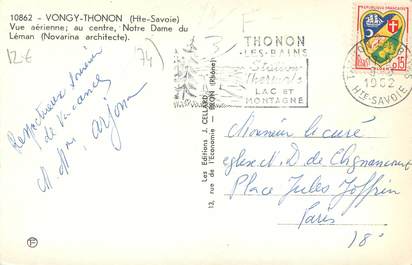 10862 - VONGY-THONON (Hte-Savoie)
Vue aérienne; au centre, Notre Dame du
Léman (Novarina architecte).
12€
74)
Respectueux souvenir
de vacances
M. Mme
Les Editions J. CELLARD
13, rue de l'Economie - BRON (Rhône)
THONON
LES-BAINS
Station
thermale
LAC ET
MONTAGNE
REPUBLIQUE FRANÇAISE
0,15
1962
HTE-SAVOIE
Monsieur le curé
église N.D de Clignancourt
Place Jules Joffrin
Paris
18e